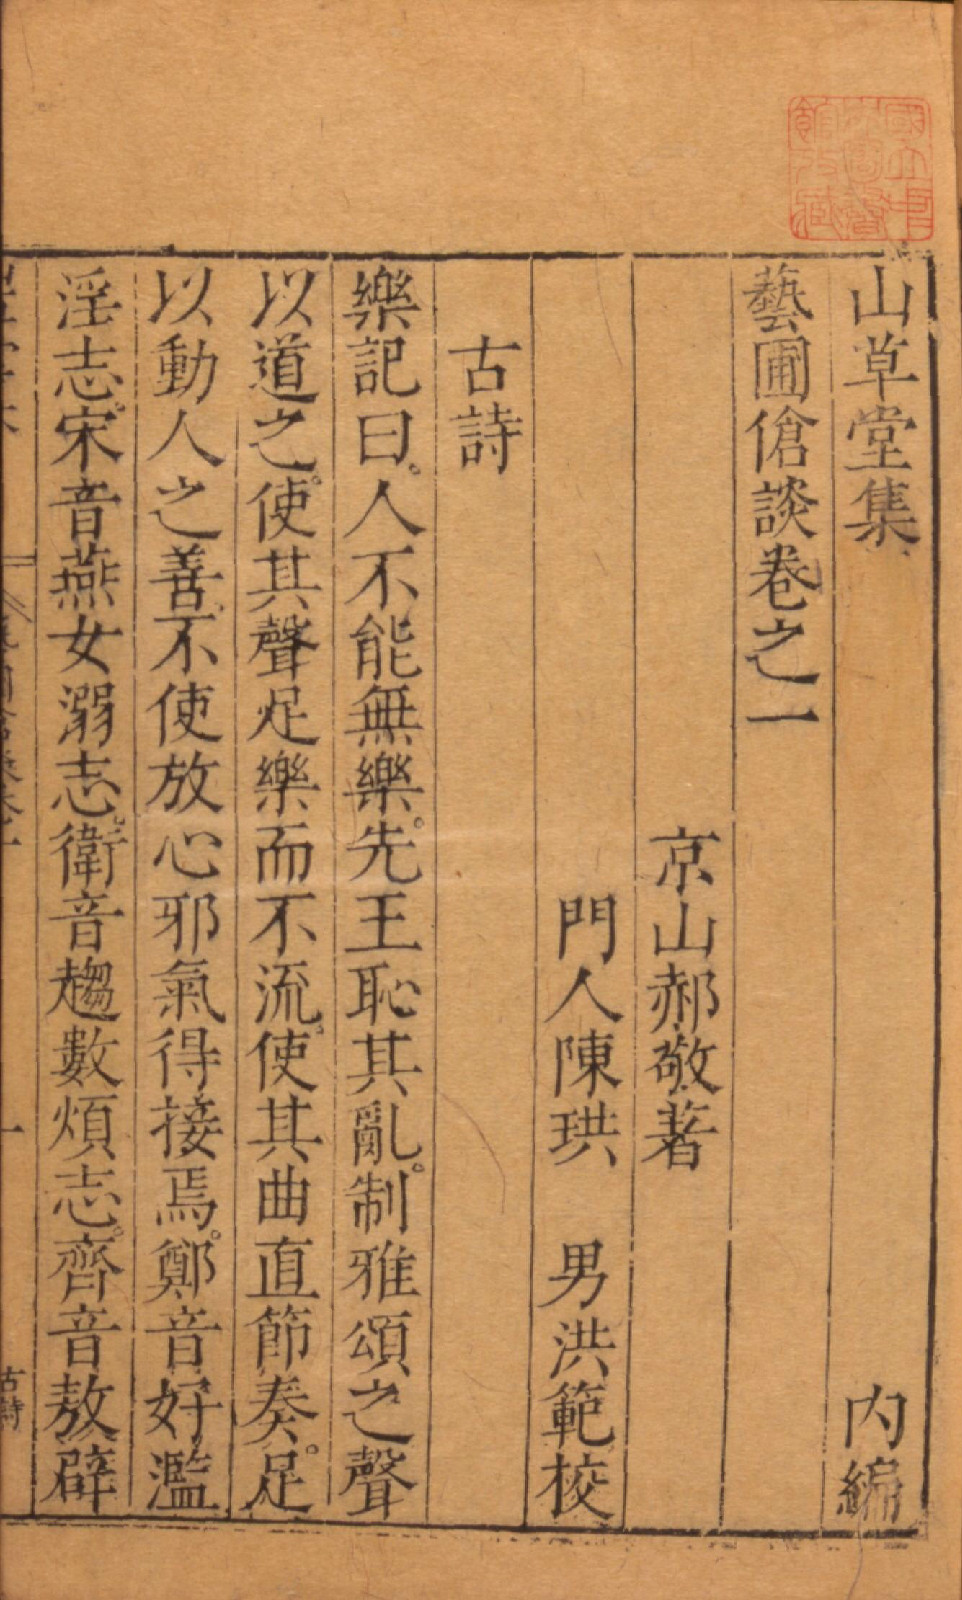 山草堂集　內編
藝圃傖談卷之一
京山郝敬著
門人陳珙　男洪範校
古詩
樂記曰。人不能無樂。先王恥其亂。制雅頌之聲
以道之。使其聲足樂而不流。使其曲直節奏。足
以動人之善。不使放心邪氣得接焉。鄭音好濫
淫志。宋音燕女溺志。衛音趨數煩志。齊音敖辟
古詩
一
國立中央圖書館收藏